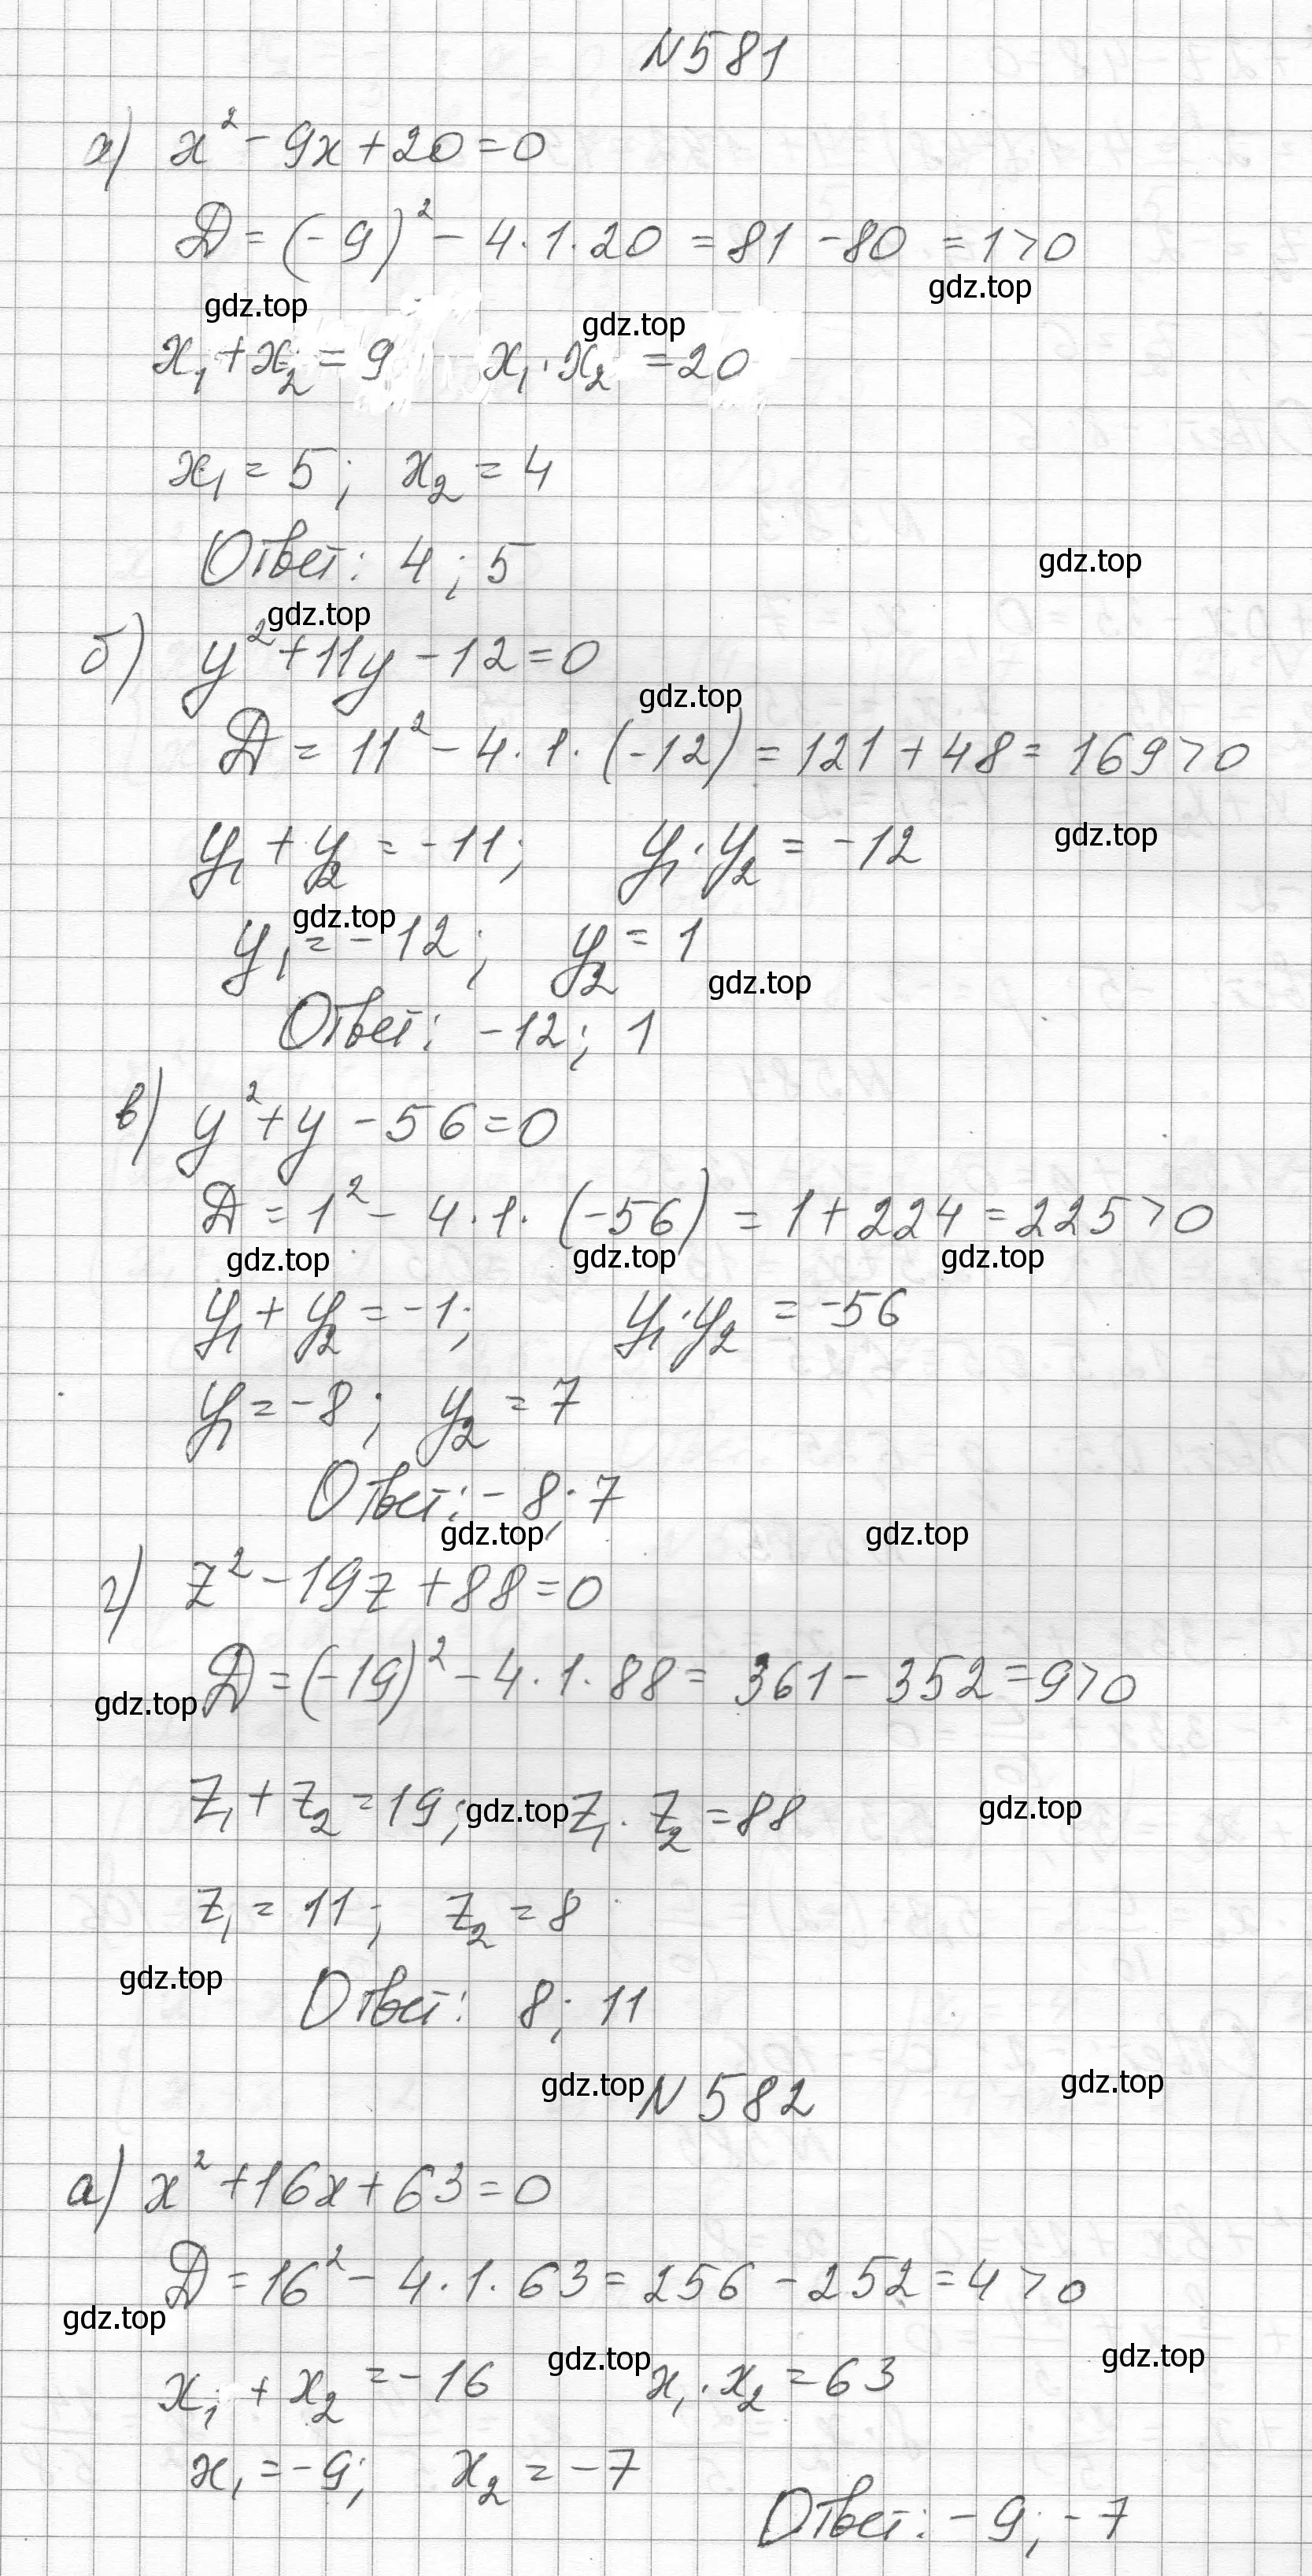 N 581
а) x² - 9x + 20 = 0
D = (-9)² - 4·1·20 = 81 - 80 = 1 > 0
gdz.top
gdz.top gdz.top
x₁ + x₂ = 9 x₁·x₂ = 20
x₁ = 5; x₂ = 4
Ответ: 4; 5
gdz.top
gdz.top
б) y² + 11y - 12 = 0
gdz.top
D = 11² - 4·1·(-12) = 121 + 48 = 169 > 0
gdz.top
y₁ + y₂ = -11; y₁·y₂ = -12
gdz.top
y₁ = -12; y₂ = 1
gdz.top
Ответ: -12; 1
в) y² + y - 56 = 0
D = 1² - 4·1·(-56) = 1 + 224 = 225 > 0
gdz.top gdz.top gdz.top
y₁ + y₂ = -1; y₁·y₂ = -56
y₁ = -8; y₂ = 7
Ответ: -8; 7
gdz.top gdz.top
г) z² - 19z + 88 = 0
D = (-19)² - 4·1·88 = 361 - 352 = 9 > 0
gdz.top
z₁ + z₂ = 19; z₁·z₂ = 88
gdz.top gdz.top
z₁ = 11; z₂ = 8
gdz.top
Ответ: 8; 11
gdz.top gdz.top
N 582
а) x² + 16x + 63 = 0
D = 16² - 4·1·63 = 256 - 252 = 4 > 0
gdz.top
gdz.top gdz.top
x₁ + x₂ = -16 x₁·x₂ = 63
x₁ = -9; x₂ = -7
Ответ: -9; -7